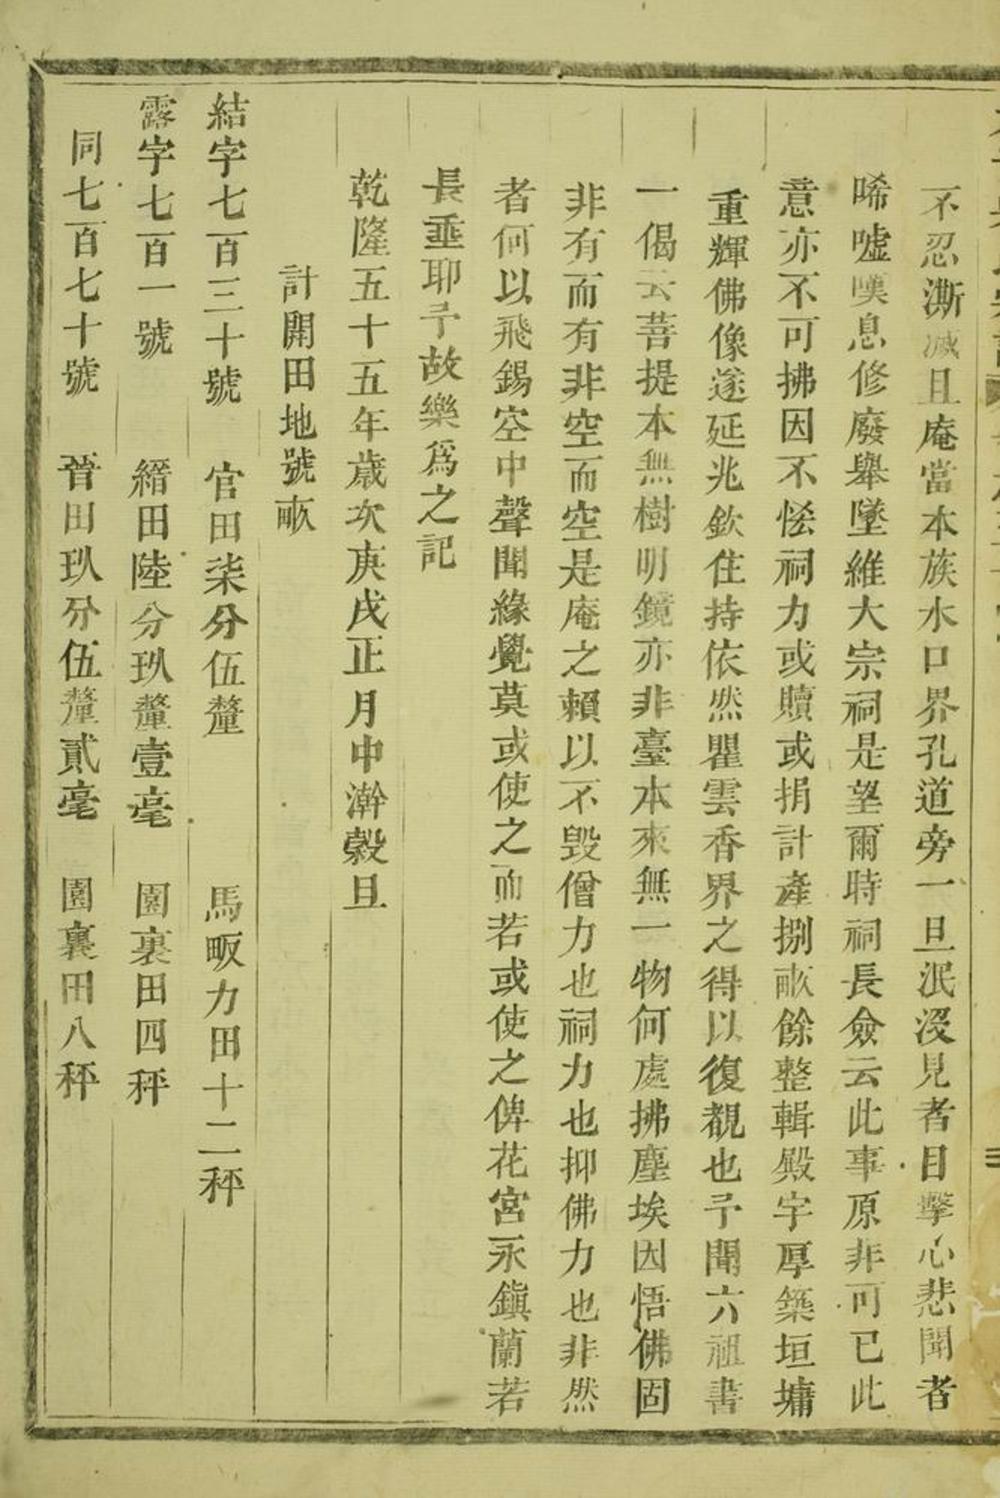 不忍澌滅且庵當本族水口界孔道旁一旦泯沒見者目擊心悲聞者
唏噓嘆息修廢舉墜維大宗祠是望爾時祠長僉云此事原非可已此
意亦不可拂因不恡祠力或贖或捐計產捌畝餘整輯殿宇厚築垣墉
重輝佛像遂延兆欽住持依然瞿雲香界之得以復覩也予聞六祖書
一偈云菩提本無樹明鏡亦非臺本來無一物何處拂塵埃因悟佛固
非有而有非空而空是庵之賴以不毀僧力也祠力也抑佛力也非然
者何以飛錫空中聲聞緣覺莫或使之而若或使之俾花宮永鎭蘭若
長垂耶予故樂爲之記
乾隆五十五年歲次庚戌正月中澣榖旦
計開田地號畝
結字七百三十號 官田柒分伍釐 馬畈力田十二秤
露字七百一號 縉田陸分玖釐壹毫 園裏田四秤
同七百七十號 晉田玖分伍釐貳毫 園裏田八秤